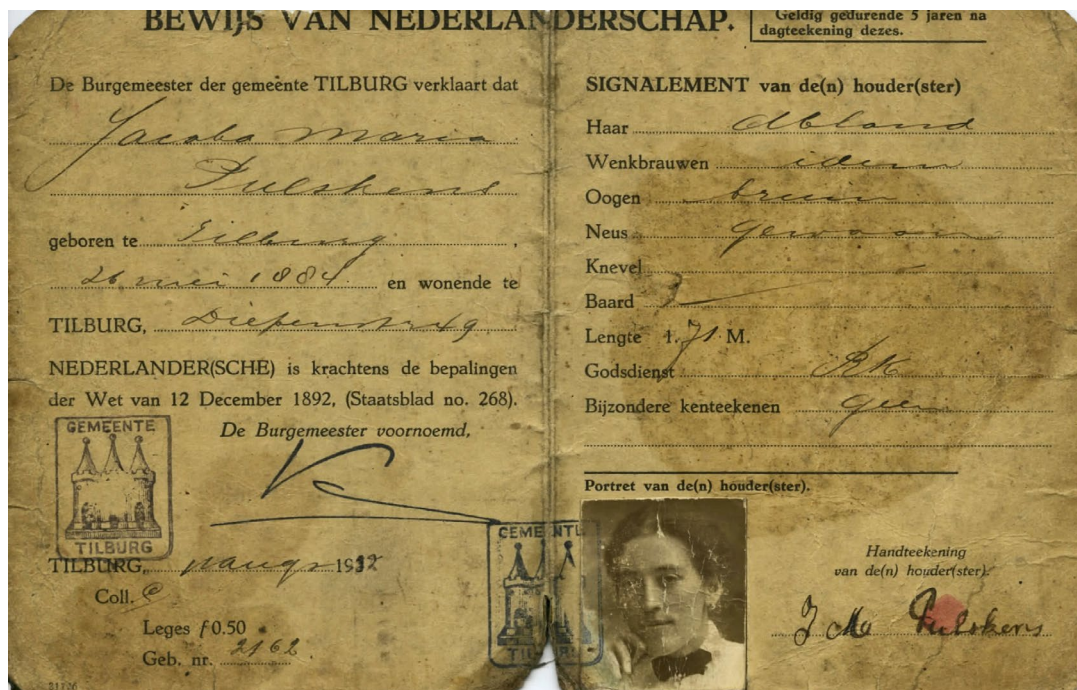 BEWIJS VAN NEDERLANDERSCHAP.
Geldig gedurende 5 jaren na
dagteekening dezes.
De Burgemeester der gemeente TILBURG verklaart dat
Jacoba Maria
Pulskens
geboren te Tilburg,
26 mei 1884. en wonende te
TILBURG, Diepenstr 49
NEDERLANDER(SCHE) is krachtens de bepalingen
der Wet van 12 December 1892, (Staatsblad no. 268).
De Burgemeester voornoemd,
GEMEENTE
TILBURG
TILBURG, 1932
Coll. C
Leges ƒ 0.50
Geb. nr. 2162
SIGNALEMENT van de(n) houder(ster)
Haar dblond
Wenkbrauwen idem
Oogen bruin
Neus gewoon
Knevel
Baard
Lengte 1.71 M.
Godsdienst RK
Bijzondere kenteekenen geen
Portret van de(n) houder(ster).
GEMEENTE
TILBURG
Handteekening
van de(n) houder(ster).
J M Pulskens